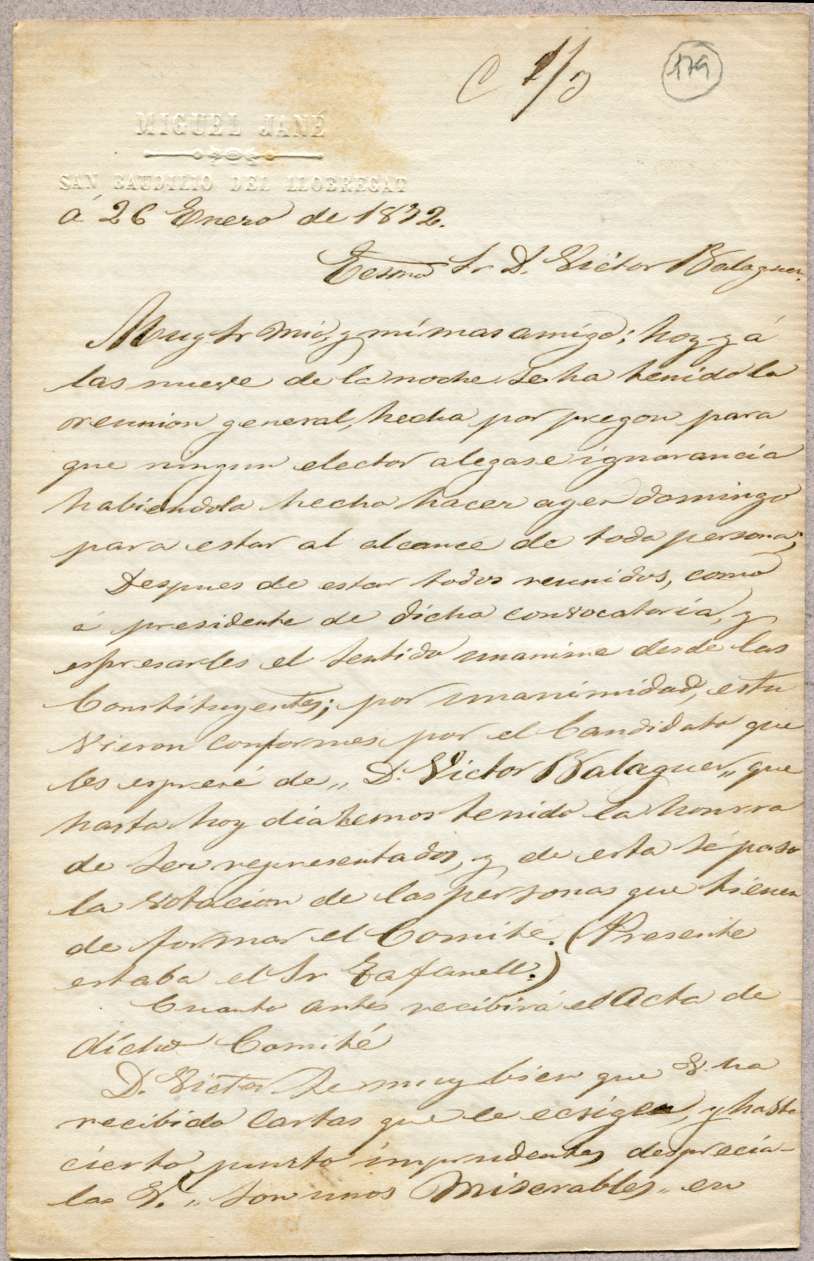 C 1/3
179
MIGUEL JANÉ
SAN BAUDILIO DEL LLOBREGAT
á 26 Enero de 1832.
Ecsmo Sr D. Victor Balaguer.
Muy Sr mio, y mí mas amigo; hoy y á
las nueve de la noche se ha tenido la
reunion general, hecha por pregon para
que ningun elector alegase ignorancia
habiendola hecho hacer ayer domingo
para estar al alcance de toda persona,
Despues de estar todos reunidos, como
á presidente de dicha convocatoria, y
espresarles el sentido unanime desde las
Constituyentes; por unanimidad, estu
vieron conformes por el Candidato que
les espresé de „ D. Victor Balaguer „ que
hasta hoy dia hemos tenido la honrra
de ser representados, y de esta sé paso
la votacion de las personas que tienen
de formar el Comité. (Presente
estaba el Sr Tafanell.)
Cuanto antes recibirá el Acta de
dícho Comité
D. Victor se muy bien que V. ha
recibido cartas que le ecsigen, y hasta
cierto punto imprudentes desprecia-
las V. „ Son unos Miserables „ en